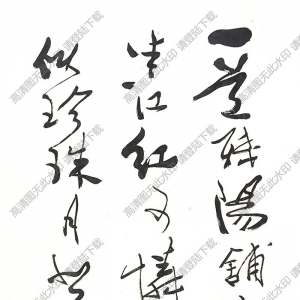 一道残陽舖
半江红可憐
似珍珠月
高清图无此水印 请登陆下载